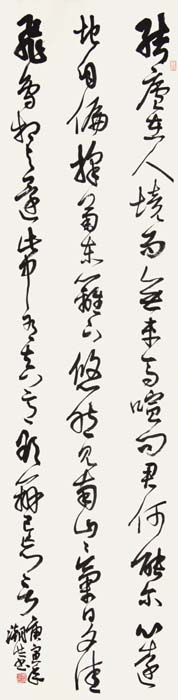 結廬在人境而無車馬喧問君何能尔心遠
地自偏採菊東籬下悠然見南山々氣日夕佳
飛鳥相与還此中有真意欲辨已忘言
庚寅年